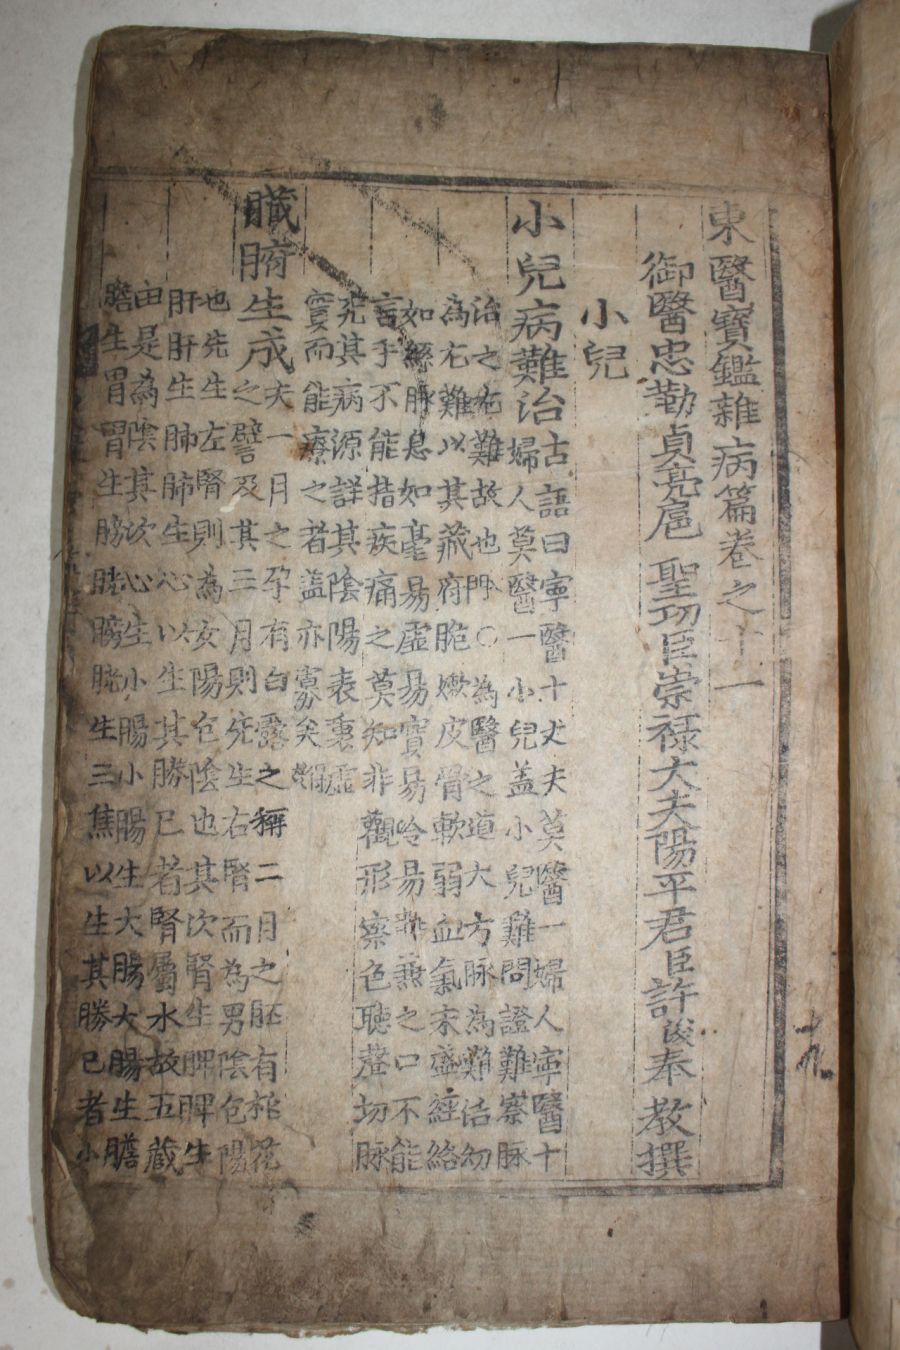 東醫寶鑑雜病篇卷之十一
御醫忠勤貞亮扈 聖功臣崇祿大夫陽平君臣許浚奉 敎撰
小兒
小兒病難治
古語曰寧醫十丈夫莫醫一婦人寧醫十
婦人莫醫一小兒盖小兒難問證難察脉
治之尤難故也門〇為醫之道大方脉為難活幼
為尤難以其藏府脆嫩皮骨軟弱血氣未盛經絡
如絲脉息如毫易虛易實易冷易熱兼之口不能
言手不能指疾痛之莫知非觀形察色聽聲切脉
究其病源詳其陰陽表裏虛
實而能療之者盖亦寡矣
臟腑生成
夫一月之孕有白露之稱二月之胚有桃花
之譬及其三月則先生右腎而為男陰包陽
也先生左腎則為女陽包陰也其次腎生脾脾生
肝肝生肺肺生心以生其勝己者腎屬水故五藏
由是為陰其次心生小腸小腸生大腸大腸生膽
膽生胃胃生膀胱膀胱生三焦以生其勝己者小